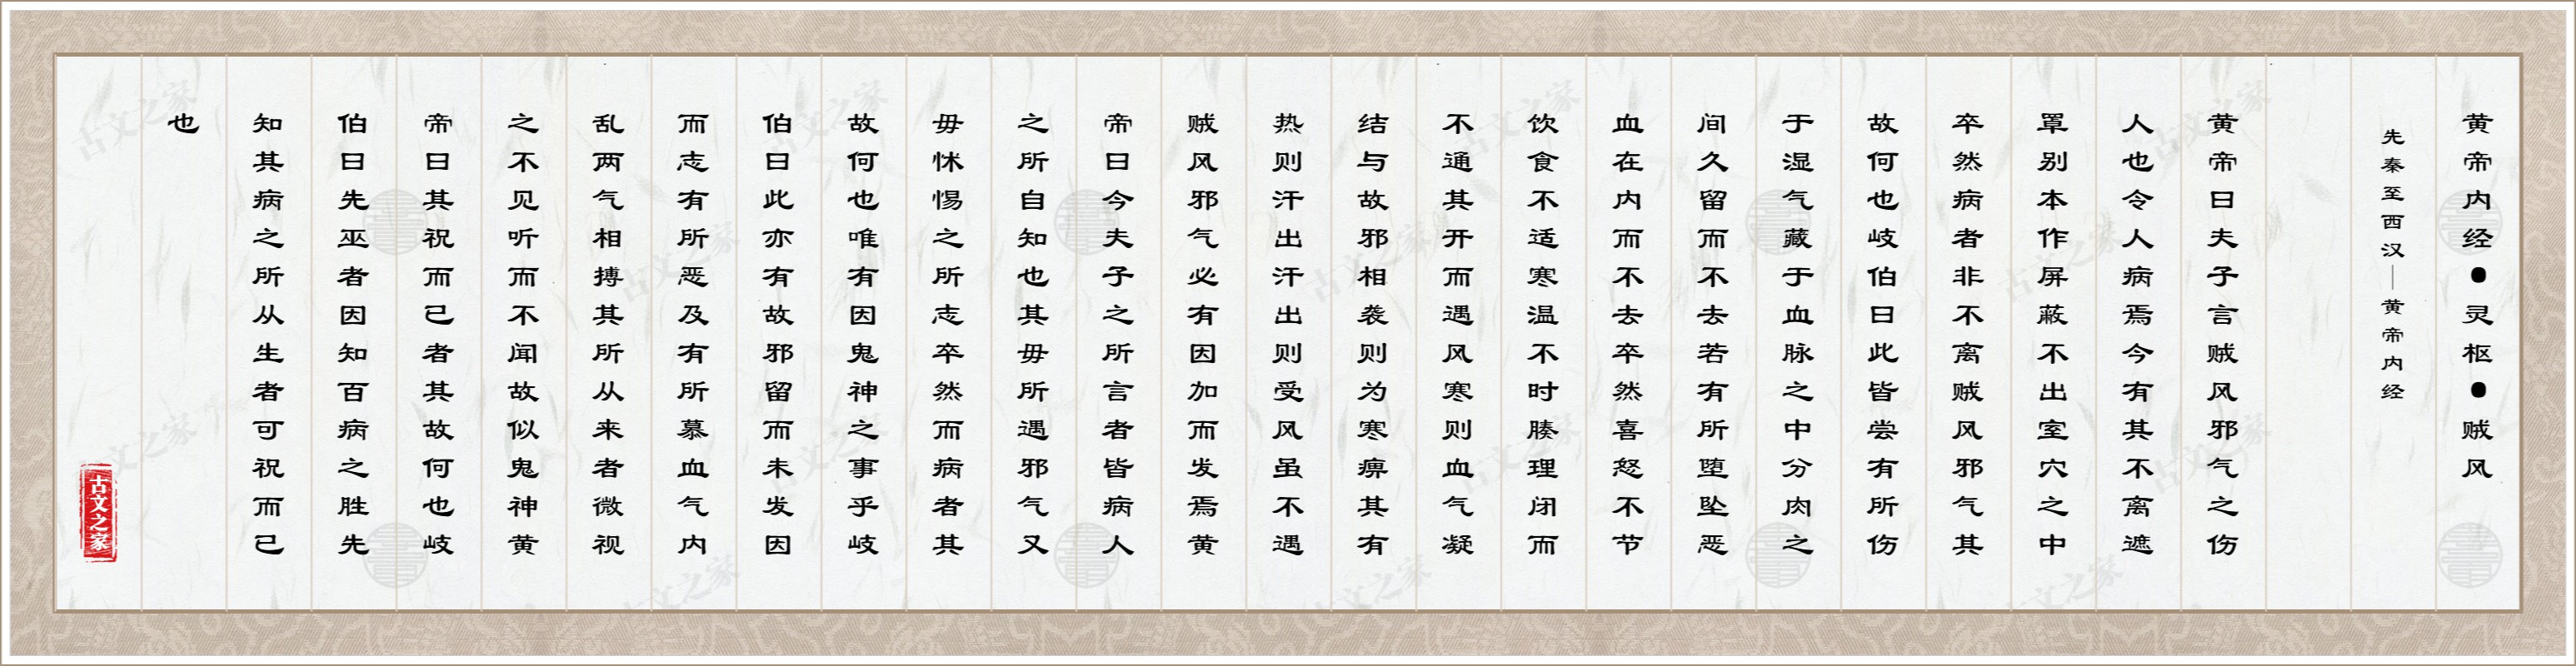 黄帝内经●灵枢●贼风
先秦至西汉｜黄帝内经
黄帝曰夫子言贼风邪气之伤
人也令人病焉今有其不离遮
罩别本作屏蔽不出室穴之中
卒然病者非不离贼风邪气其
故何也岐伯曰此皆尝有所伤
于湿气藏于血脉之中分肉之
间久留而不去若有所堕坠恶
血在内而不去卒然喜怒不节
饮食不适寒温不时腠理闭而
不通其开而遇风寒则血气凝
结与故邪相袭则为寒痹其有
热则汗出汗出则受风虽不遇
贼风邪气必有因加而发焉黄
帝曰今夫子之所言者皆病人
之所自知也其毋所遇邪气又
毋怵惕之所志卒然而病者其
故何也唯有因鬼神之事乎岐
伯曰此亦有故邪留而未发因
而志有所恶及有所慕血气内
乱两气相搏其所从来者微视
之不见听而不闻故似鬼神黄
帝曰其祝而已者其故何也岐
伯曰先巫者因知百病之胜先
知其病之所从生者可祝而已
也
古文之家